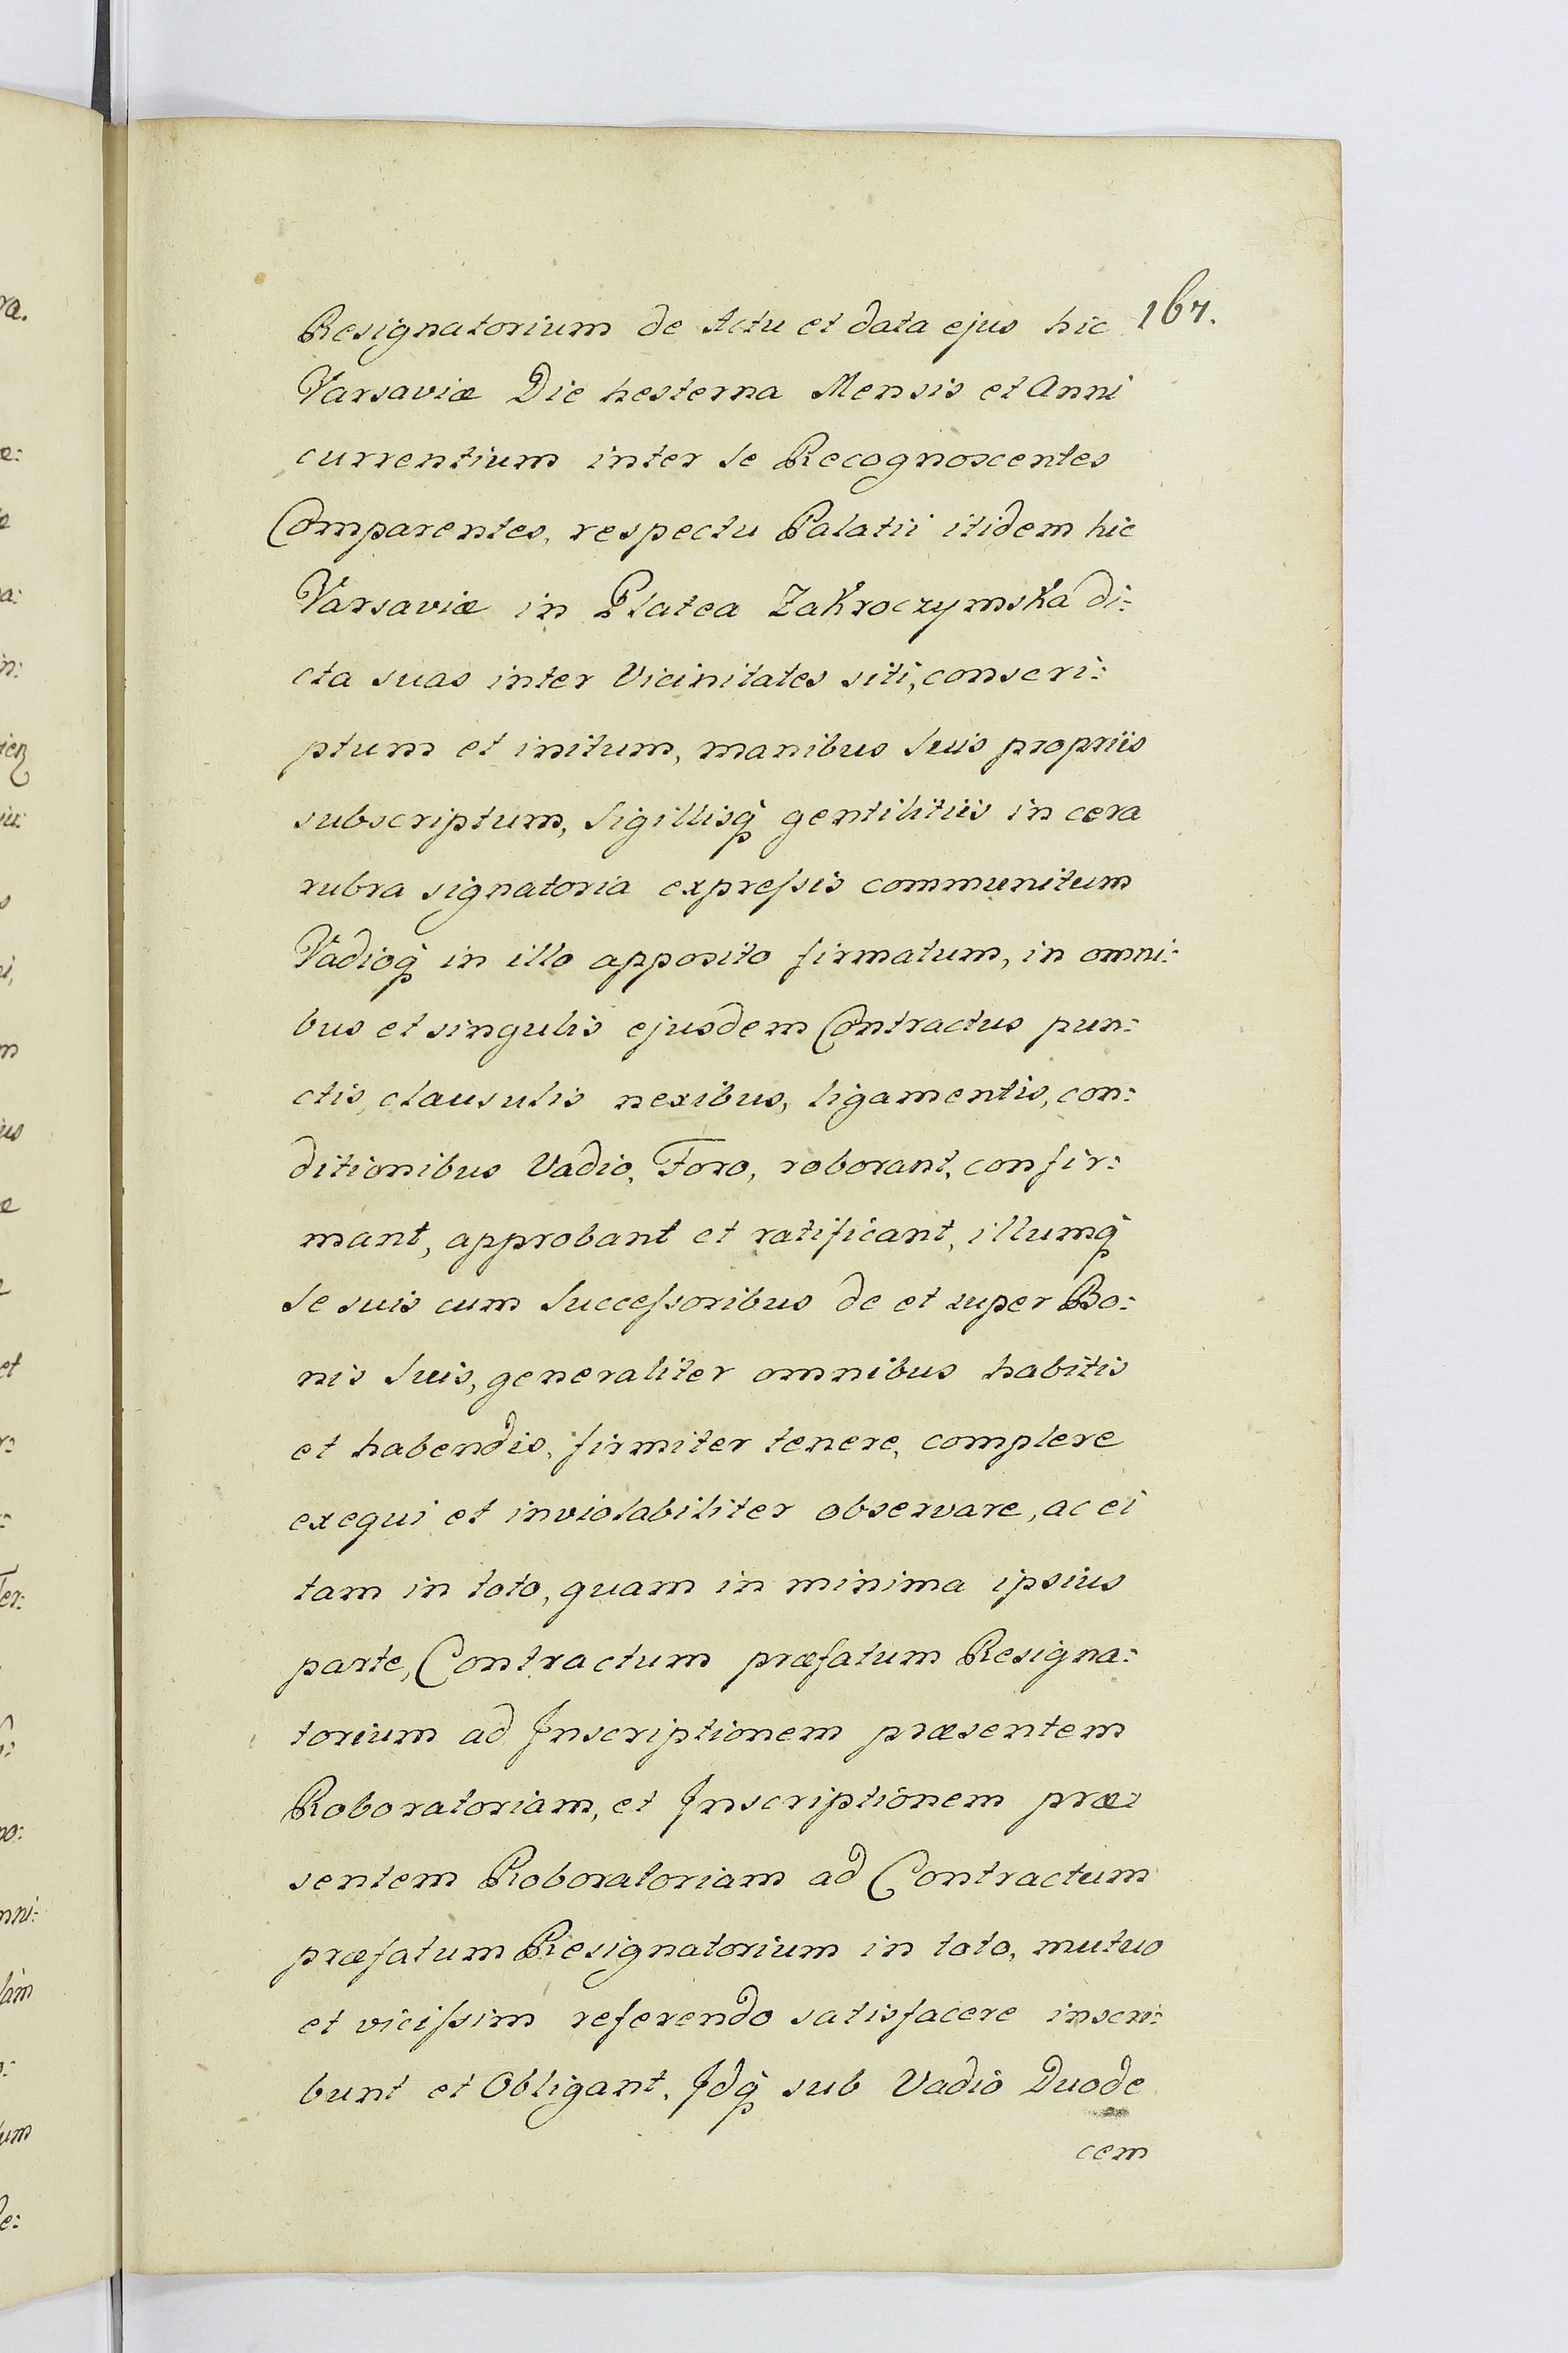 167.
Resignatorium de Actu et data ejus hic
Varsaviæ Die hesterna Mensis et Anni
currentium inter se Recognoscentes
Comparentes, respectu Palatii itidem hic
Varsaviæ in Platea Zakroczymska di:
cta suas inter Vicinitates siti, conscri:
ptum et initum, manibus suis propriis
subscriptum, Sigillisq̃ gentilitiis in cera
rubra signatoria expreſsis communitum
Vadioq̃ in illo apposito firmatum, in omni:
bus et singulis ejusdem Contractus pun:
ctis, clausulis nexibus, ligamentis, con:
ditionibus Vadio, Foro, roborant, confir:
mant, approbant et ratificant, illumq̃
se suis cum Succeſsoribus de et super Bo:
nis suis, generaliter omnibus habitis
et habendis, firmiter tenere, complere
exequi et inviolabiliter observare, ac ei
tam in toto, quam in minima ipsius
parte, Contractum præfatum Resigna:
torium ad Inscriptionem præsentem
Roboratoriam, et Inscriptionem præ:
sentem Roboratoriam ad Contractum
præfatum Resignatorium in toto, mutuo
et viciſsim referendo satisfacere inscri:
bunt et Obligant. Idq̃ sub Vadio Duode
cem